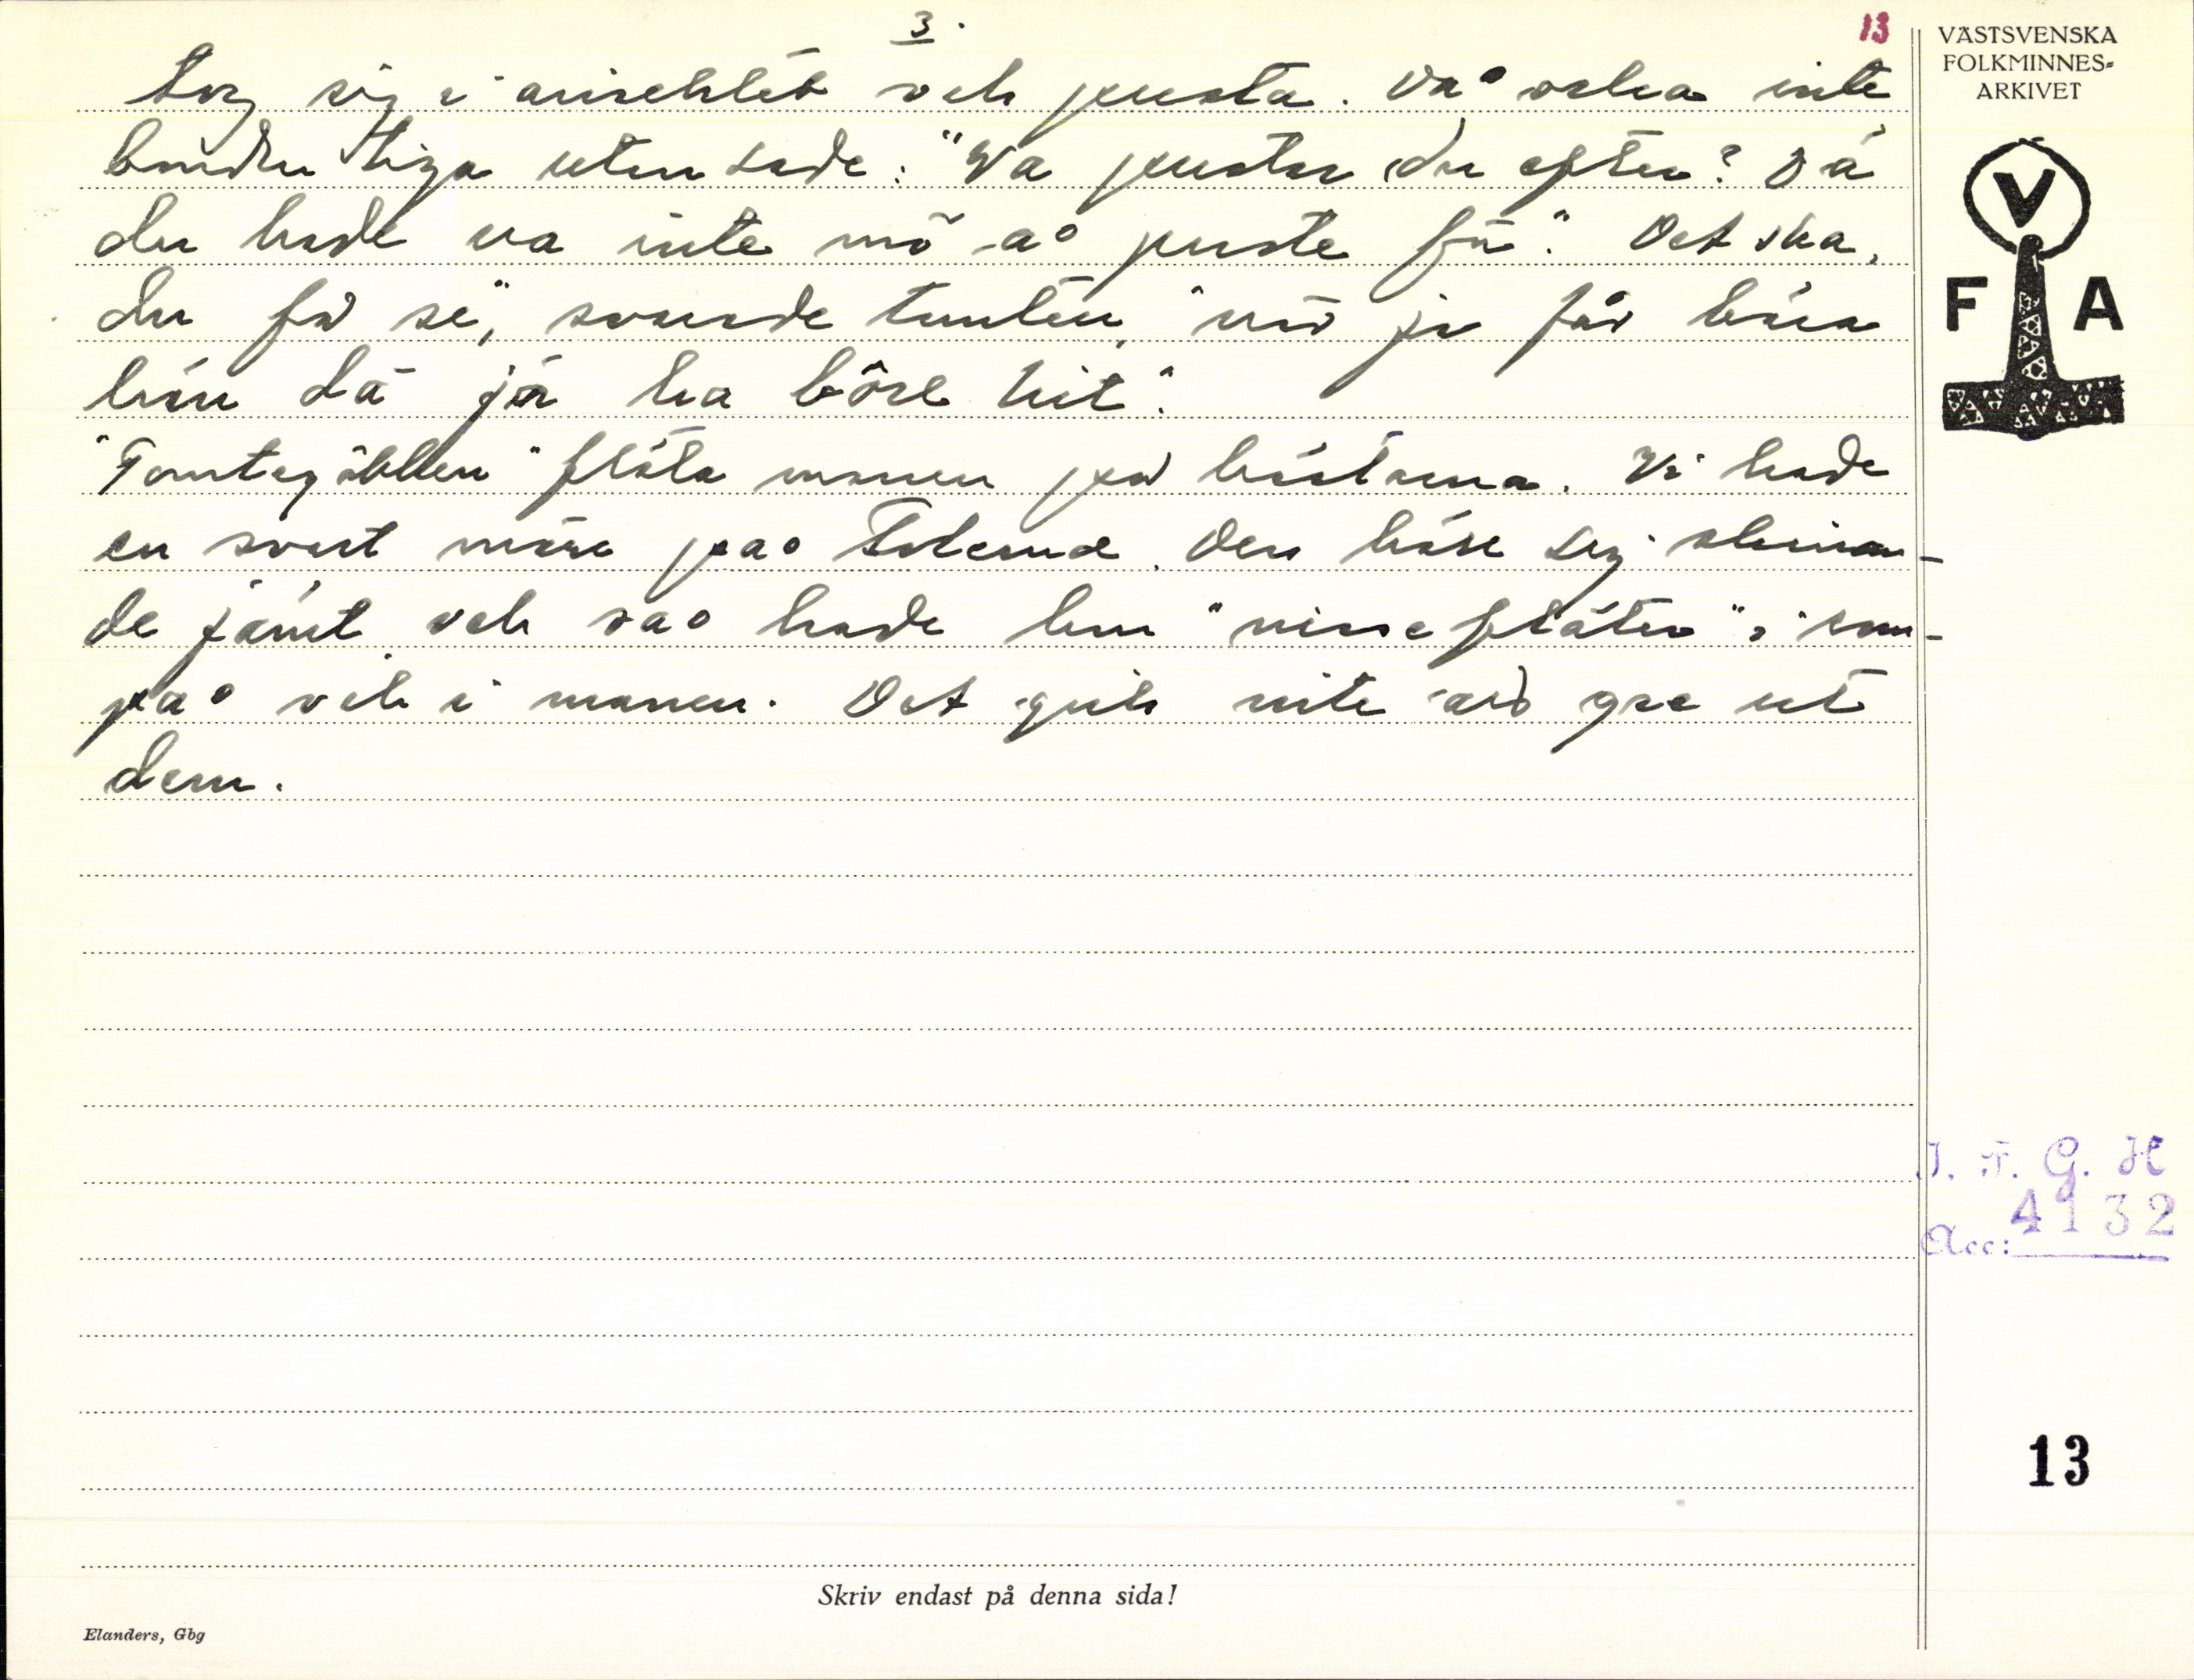 3.
13
tog sig i ansektet och pusta. Då orka inte
bonden tiga uten sade: "Va pustar du efter? Dä
du hade va inte mö ao puste för." "Det ska
du få se", svarade tomten, "när ja får bära
bån dä ja ha böre hit".
"Tomtegobben" fläta manen på hästarna. Vi hade
en svart märr pao Tolerud. Den
de jämt och sao hade hun "nisseflätor" i
pao och i manen. Det gick inte å gre ut
dem.
VÄSTSVENSKA
FOLKMINNES-
ARKIVET
V
F A
I. F. G. H
Acc: 4132
13
Skriv endast på denna sida!
Elanders, Gbg